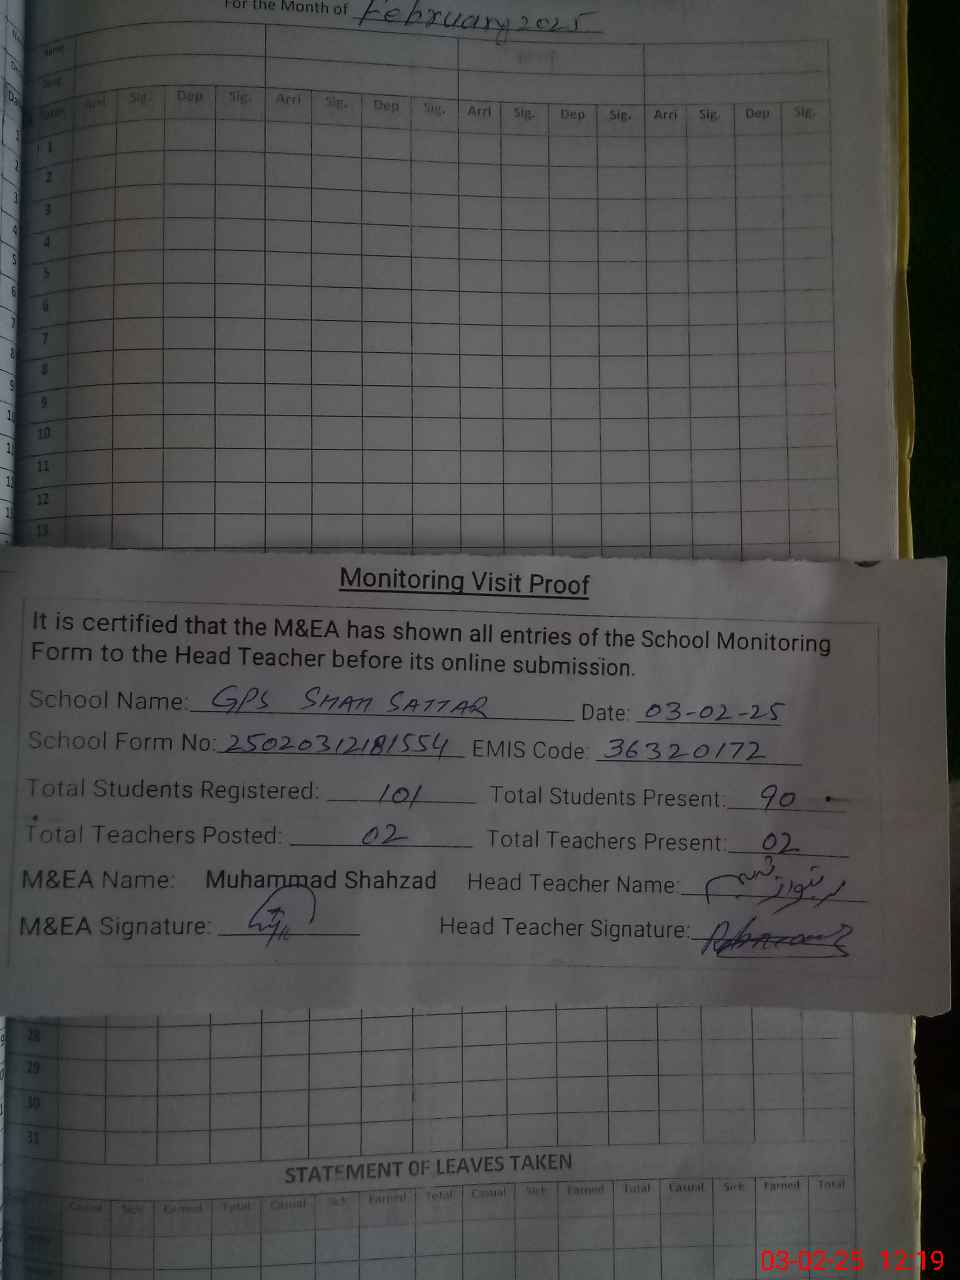 For the Month of February 2025
Name
Arri Sig. Dep Sig. Arri Sig. Dep Sig. Arri Sig. Dep Sig. Arri Sig. Dep Sig.
1
2
3
4
5
6
7
8
9
10
11
12
13
Monitoring Visit Proof
It is certified that the M&EA has shown all entries of the School Monitoring
Form to the Head Teacher before its online submission.
School Name: GPS SHAH SATTAR Date: 03-02-25
School Form No: 25020312181554 EMIS Code: 36320172
Total Students Registered: 101 Total Students Present: 90
Total Teachers Posted: 02 Total Teachers Present: 02
M&EA Name: Muhammad Shahzad Head Teacher Name:
M&EA Signature: Head Teacher Signature:
28
29
30
31
STATEMENT OF LEAVES TAKEN
Casual Sick Earned Total Casual Sick Earned Total Casual Sick Earned Total Casual Sick Earned Total
03-02-25 12:19